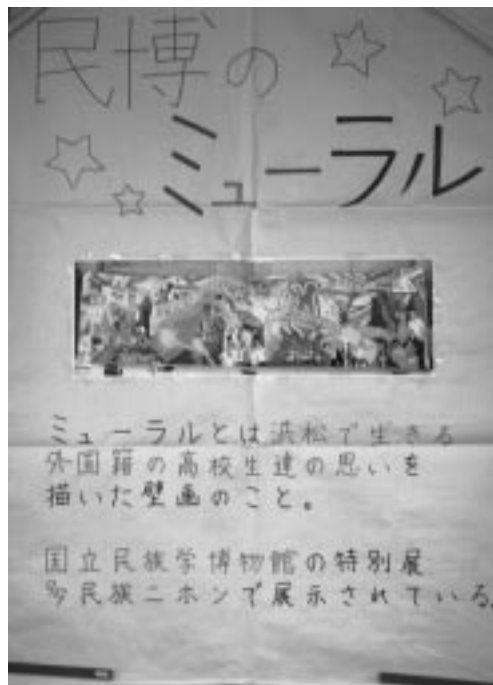 民博の
ミューラル
ミューラルとは浜松で生きる
外国籍の高校生達の思いを
描いた壁画のこと。
国立民族学博物館の特別展
多民族ニホンで展示されている。